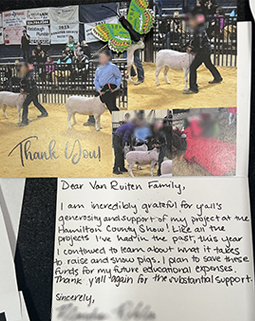 Thank You!
Dear Van Ruiten Family,
I am incredibly grateful for yall's
generosity and support of my project at the
Hamilton County Show! Like all the
projects I've had in the past, this year
I continued to learn about what it takes
to raise and show pigs. I plan to save these
funds for my future educational expenses.
Thank y'all again for the substantial support.
Sincerely,